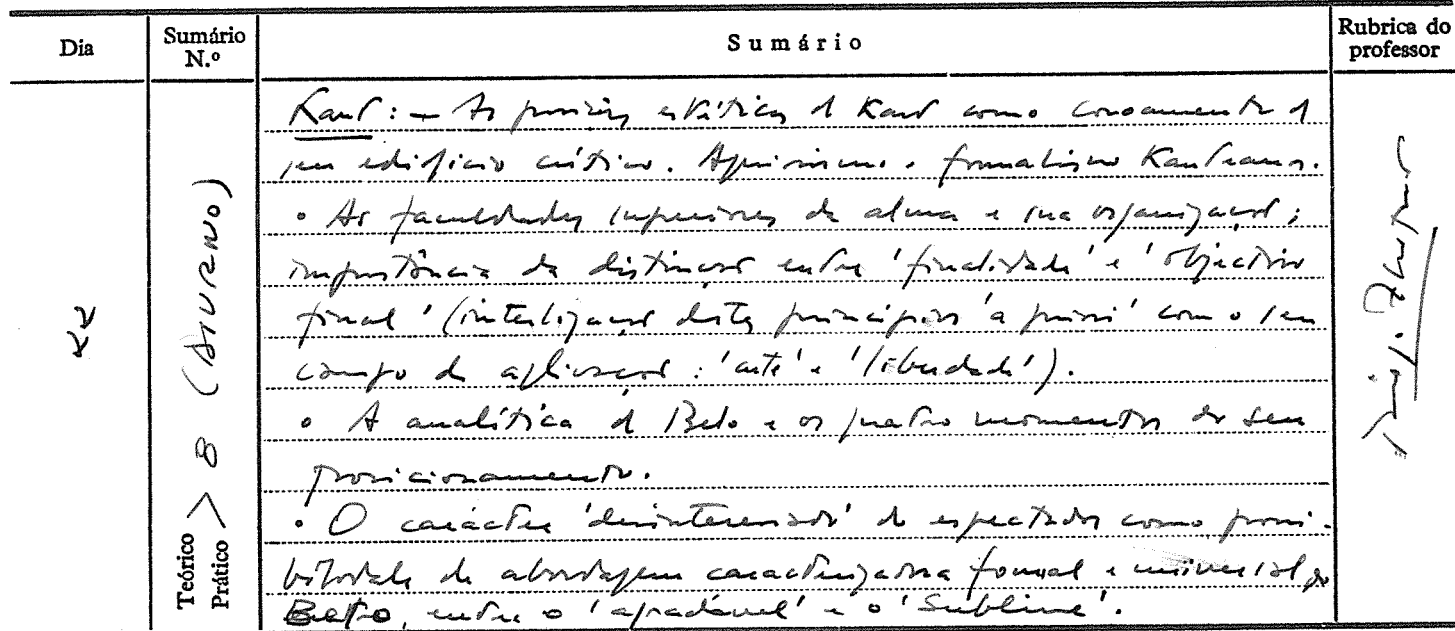 Dia
Sumário N.º
Sumário
Rubrica do professor
22
Teórico Prático > 8 (DIURNO)
Kant: - As posições estéticas de Kant como coroamento do
seu edifício crítico. Apriorismo e formalismo Kanteanos.
• As faculdades superiores da alma e sua organização;
importância da distinção entre 'finalidade' e 'objectivo
final' (interligação destes princípios 'a priori' com o seu
campo de aplicação: 'arte' e 'liberdade').
• A analítica do Belo e os quatro momentos do seu
posicionamento.
• O carácter 'desinteressado' do espectador como possi-
bilidade de abordagem caracterizadora formal e universal do
Belo, entre o 'agradável' e o 'Sublime'.